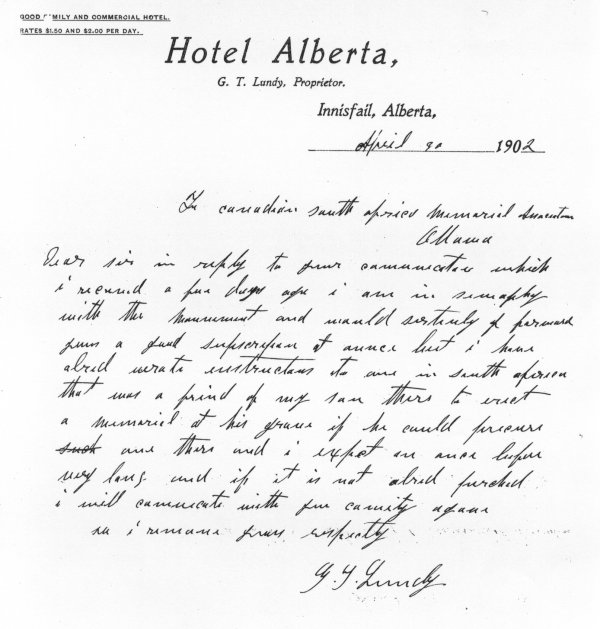 GOOD FAMILY AND COMMERCIAL HOTEL.
RATES $1.50 AND $2.00 PER DAY.
Hotel Alberta,
G. T. Lundy, Proprietor.
Innisfail, Alberta,
April 30 1902
To canadian south africo Memorial
Ottawa
Dear sir in reply to your comunication which
i receved a fue days ago i am in simaphy
with the Monument and would sirtinly forward
youre a good supscripan at aunce but i have
alred wrate instructans to one in south africa
that was a frind of my son thire to erect
a memorial at his grave if he could procure
such one thire and i expct an ance before
very long and if it is not alred purched
i will comunicate with your comity agane
so i remane yours respectly
G. T. Lundy